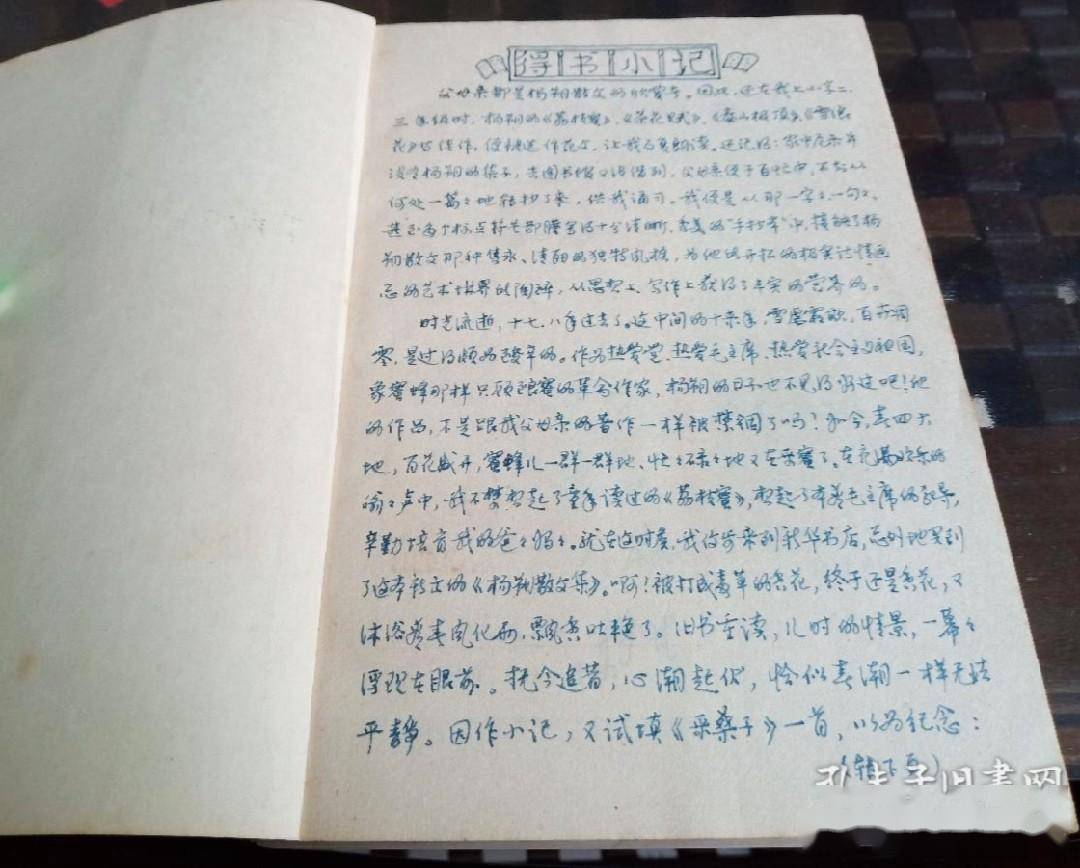 得书小记
父母亲都是杨朔散文的欣赏者。因此,还在我上小学二、
三年级时,杨朔的《荔枝蜜》、《茶花赋》、《泰山极顶》、《雪浪
花》等佳作,便被选作范文,让我反复朗读。还记得:家中原来并
没有杨朔的集子,去图书馆又没借到,父母亲便于百忙中,不知从
何处一篇々地转抄了来,供我诵习。我便是从那一字々、一句々、
甚至每个标点符号都誊写得十分清晰、秀美的“手抄本”中,接触了杨
朔散文那种隽永、清丽的独特风格,为他所开拓的极富诗情画
意的艺术境界所陶醉,从思想上、写作上获得了丰实的营养的。
时光流逝,十七、八年过去了。这中间的十来年,雪虐霜欺,百卉凋
零,是过得颇为艰辛的。作为热爱党、热爱毛主席、热爱社会主义祖国,
象蜜蜂那样只顾酿蜜的革命作家,杨朔的日子也不见得好过吧!他
的作品,不是跟我父母亲的著作一样被禁锢了吗?而今,春回大
地,百花盛开,蜜蜂儿一群一群地、忙々碌々地又在采蜜了。在充满欢乐的
嗡々声中,我不禁想起了童年读过的《荔枝蜜》,想起了本着毛主席的教导,
辛勤培育我的爸々妈々。就在这时候,我信步来到新华书店,意外地买到
了这本新版的《杨朔散文集》。啊!被打成毒草的香花,终于还是香花,又
沐浴着春风化雨,飘香吐艳了。旧书重读,儿时的情景,一幕々
浮现在眼前。抚今追昔,心潮起伏,恰似春潮一样无法
平静。因作小记,又试填《采桑子》一首,以为纪念:
(转下页)
孔夫子旧书网